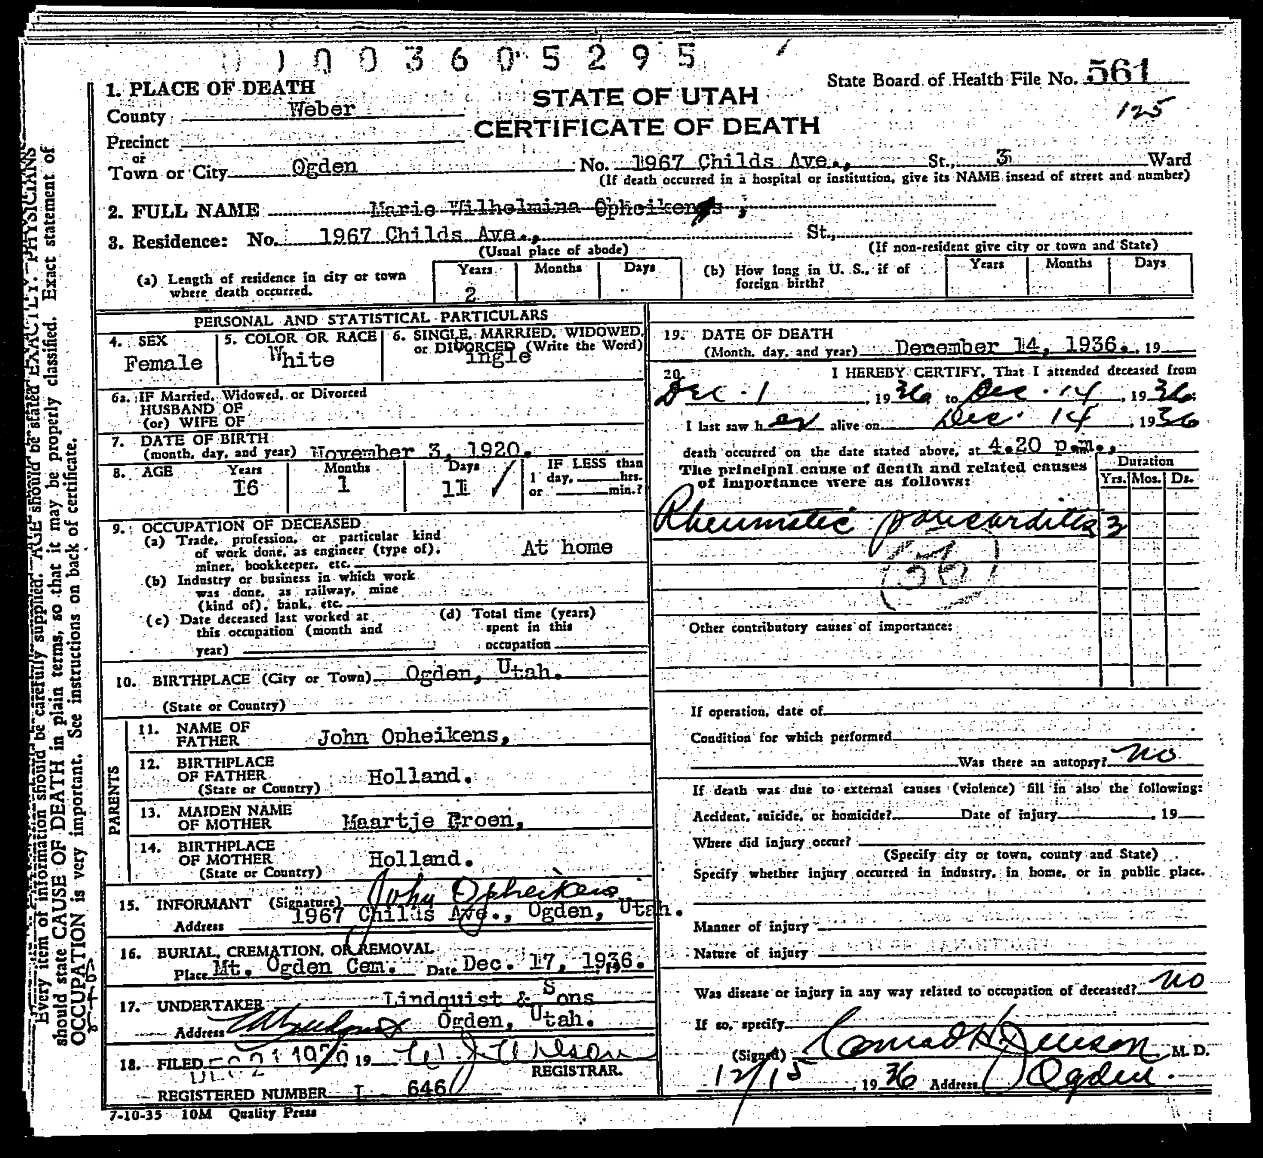 0100360 5295
State Board of Health File No. 561
125
1. PLACE OF DEATH
County Weber
STATE OF UTAH
CERTIFICATE OF DEATH
Precinct
or
Town or City Ogden No. 1967 Childs Ave., St., 3 Ward
(If death occurred in a hospital or institution, give its NAME insead of street and number)
2. FULL NAME Marie Wilhelmina Opheikens,
3. Residence: No. 1967 Childs Ave., St.,
(Usual place of abode) (If non-resident give city or town and State)
(a) Length of residence in city or town where death occurred. Years 2 Months Days
(b) How long in U. S., if of foreign birth? Years Months Days
PERSONAL AND STATISTICAL PARTICULARS
4. SEX Female
5. COLOR OR RACE White
6. SINGLE, MARRIED, WIDOWED, or DIVORCED (Write the Word) ingle
6a. IF Married, Widowed, or Divorced
HUSBAND OF
(or) WIFE OF
7. DATE OF BIRTH
(month, day, and year) November 3, 1920.
8. AGE Years 16 Months 1 Days 11
IF LESS than
1 day, hrs.
or min.?
9. OCCUPATION OF DECEASED
(a) Trade, profession, or particular kind
of work done, as engineer (type of),
miner, bookkeeper, etc. At home
(b) Industry or business in which work
was done, as railway, mine
(kind of), bank, etc.
(c) Date deceased last worked at
this occupation (month and
year)
(d) Total time (years)
spent in this
occupation
10. BIRTHPLACE (City or Town) Ogden, Utah.
(State or Country)
PARENTS
11. NAME OF
FATHER John Opheikens,
12. BIRTHPLACE
OF FATHER Holland.
(State or Country)
13. MAIDEN NAME
OF MOTHER Maartje Groen,
14. BIRTHPLACE
OF MOTHER Holland.
(State or Country)
15. INFORMANT (Signature) John Opheikens
Address 1967 Childs Ave., Ogden, Utah.
16. BURIAL, CREMATION, OR REMOVAL
Place Mt. Ogden Cem. Date Dec. 17, 1936. 19
17. UNDERTAKER Lindquist & Sons
Address Ogden, Utah.
18. FILED DEC 21 19 W. J. Wilson
REGISTRAR.
REGISTERED NUMBER I 646
7-10-35 10M Quality Press
19. DATE OF DEATH
(Month, day, and year) December 14, 1936. 19
20. I HEREBY CERTIFY, That I attended deceased from
Dec. 1, 1936 to Dec. 14, 1936.
I last saw h er alive on Dec. 14, 1936
death occurred on the date stated above, at 4.20 p.m.,
The principal cause of death and related causes
of importance were as follows:
Duration
Yrs. Mos. Ds.
Rheumatic pancarditis 3
(56)
Other contributory causes of importance:
If operation, date of
Condition for which performed
Was there an autopsy? No
If death was due to external causes (violence) fill in also the following:
Accident, suicide, or homicide? Date of injury , 19
Where did injury occur?
(Specify city or town, county and State)
Specify whether injury occurred in industry, in home, or in public place.
Manner of injury
Nature of injury
Was disease or injury in any way related to occupation of deceased? No
If so, specify
(Signed) Conrad H. Jenson M. D.
12/15, 1936 Address Ogden.
Every item of information should be carefully supplied. AGE should be stated EXACTLY. PHYSICIANS
should state CAUSE OF DEATH in plain terms, so that it may be properly classified. Exact statement of
OCCUPATION is very important. See instructions on back of certificate.